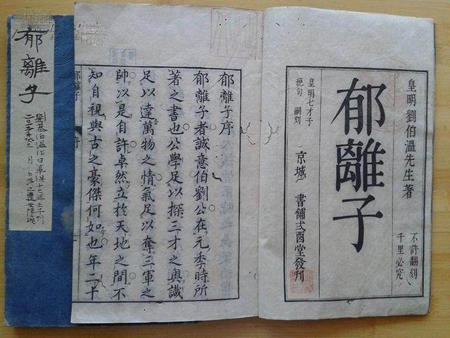 皇明劉伯溫先生著
郁離子
不許翻刻
千里必究
皇明七才子
絕句 嗣刻
京城 書鋪弍酉堂發刊
郁離子序
郁離子者誠意伯劉公在元季時所
著之書也公學足以探三才之奧識
足以達萬物之情氣足以奪三軍之
帥以是自許卓然立於天地之間不
知自視與古之豪傑何如也年二十
郁離子
序
郁離子